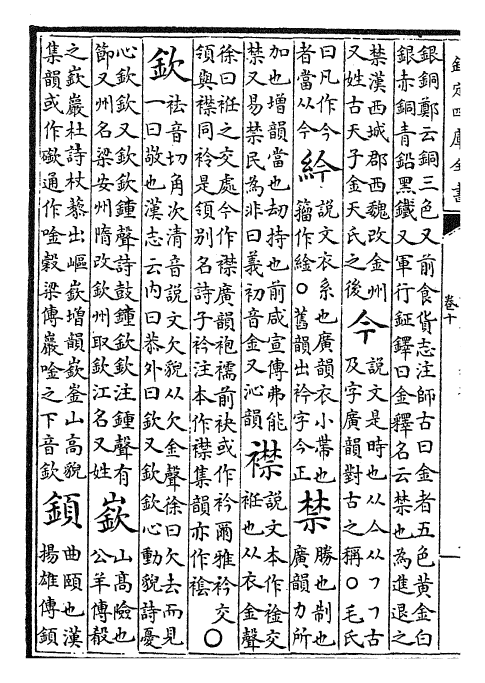 欽定四庫全書
卷十
銀銅鄭云銅三色又前食貨志注師古曰金者五色黃金白
銀赤銅青鉛黑鐵又軍行鉦鐸曰金釋名云禁也為進退之
禁漢西城郡西魏改金州
又姓古天子金天氏之後
今
說文是時也从亼从㇇㇇古
及字廣韻對古之稱○毛氏
曰凡作今
者當从今
紟
說文衣系也廣韻衣小帶也
籀作絵○舊韻出衿字今正
禁
勝也制也
廣韻力所
加也增韻當也刼持也前咸宣傳弗能
禁又易禁民為非曰義初音金又沁韻
襟
說文本作䘳交
衽也从衣金聲
徐曰衽之交處今作襟廣韻袍襦前袂或作衿爾雅衿交
領與襟同衿是領別名詩子衿注本作襟集韻亦作䘳○
欽
祛音切角次清音說文欠貌从欠金聲徐曰欠去而見
一曰敬也漢志云内曰恭外曰欽又欽欽心動貌詩憂
心欽欽又欽欽鍾聲詩鼓鍾欽欽注鍾聲有
節又州名梁安州隋改欽州取欽江名又姓
嶔
山高險也
公羊傳殽
之嶔巖杜詩杖藜出嶇嶔增韻嶔崟山高貌
集韻或作通作唫穀梁傳巖唫之下音欽
顉
曲頤也漢
揚雄傳顉